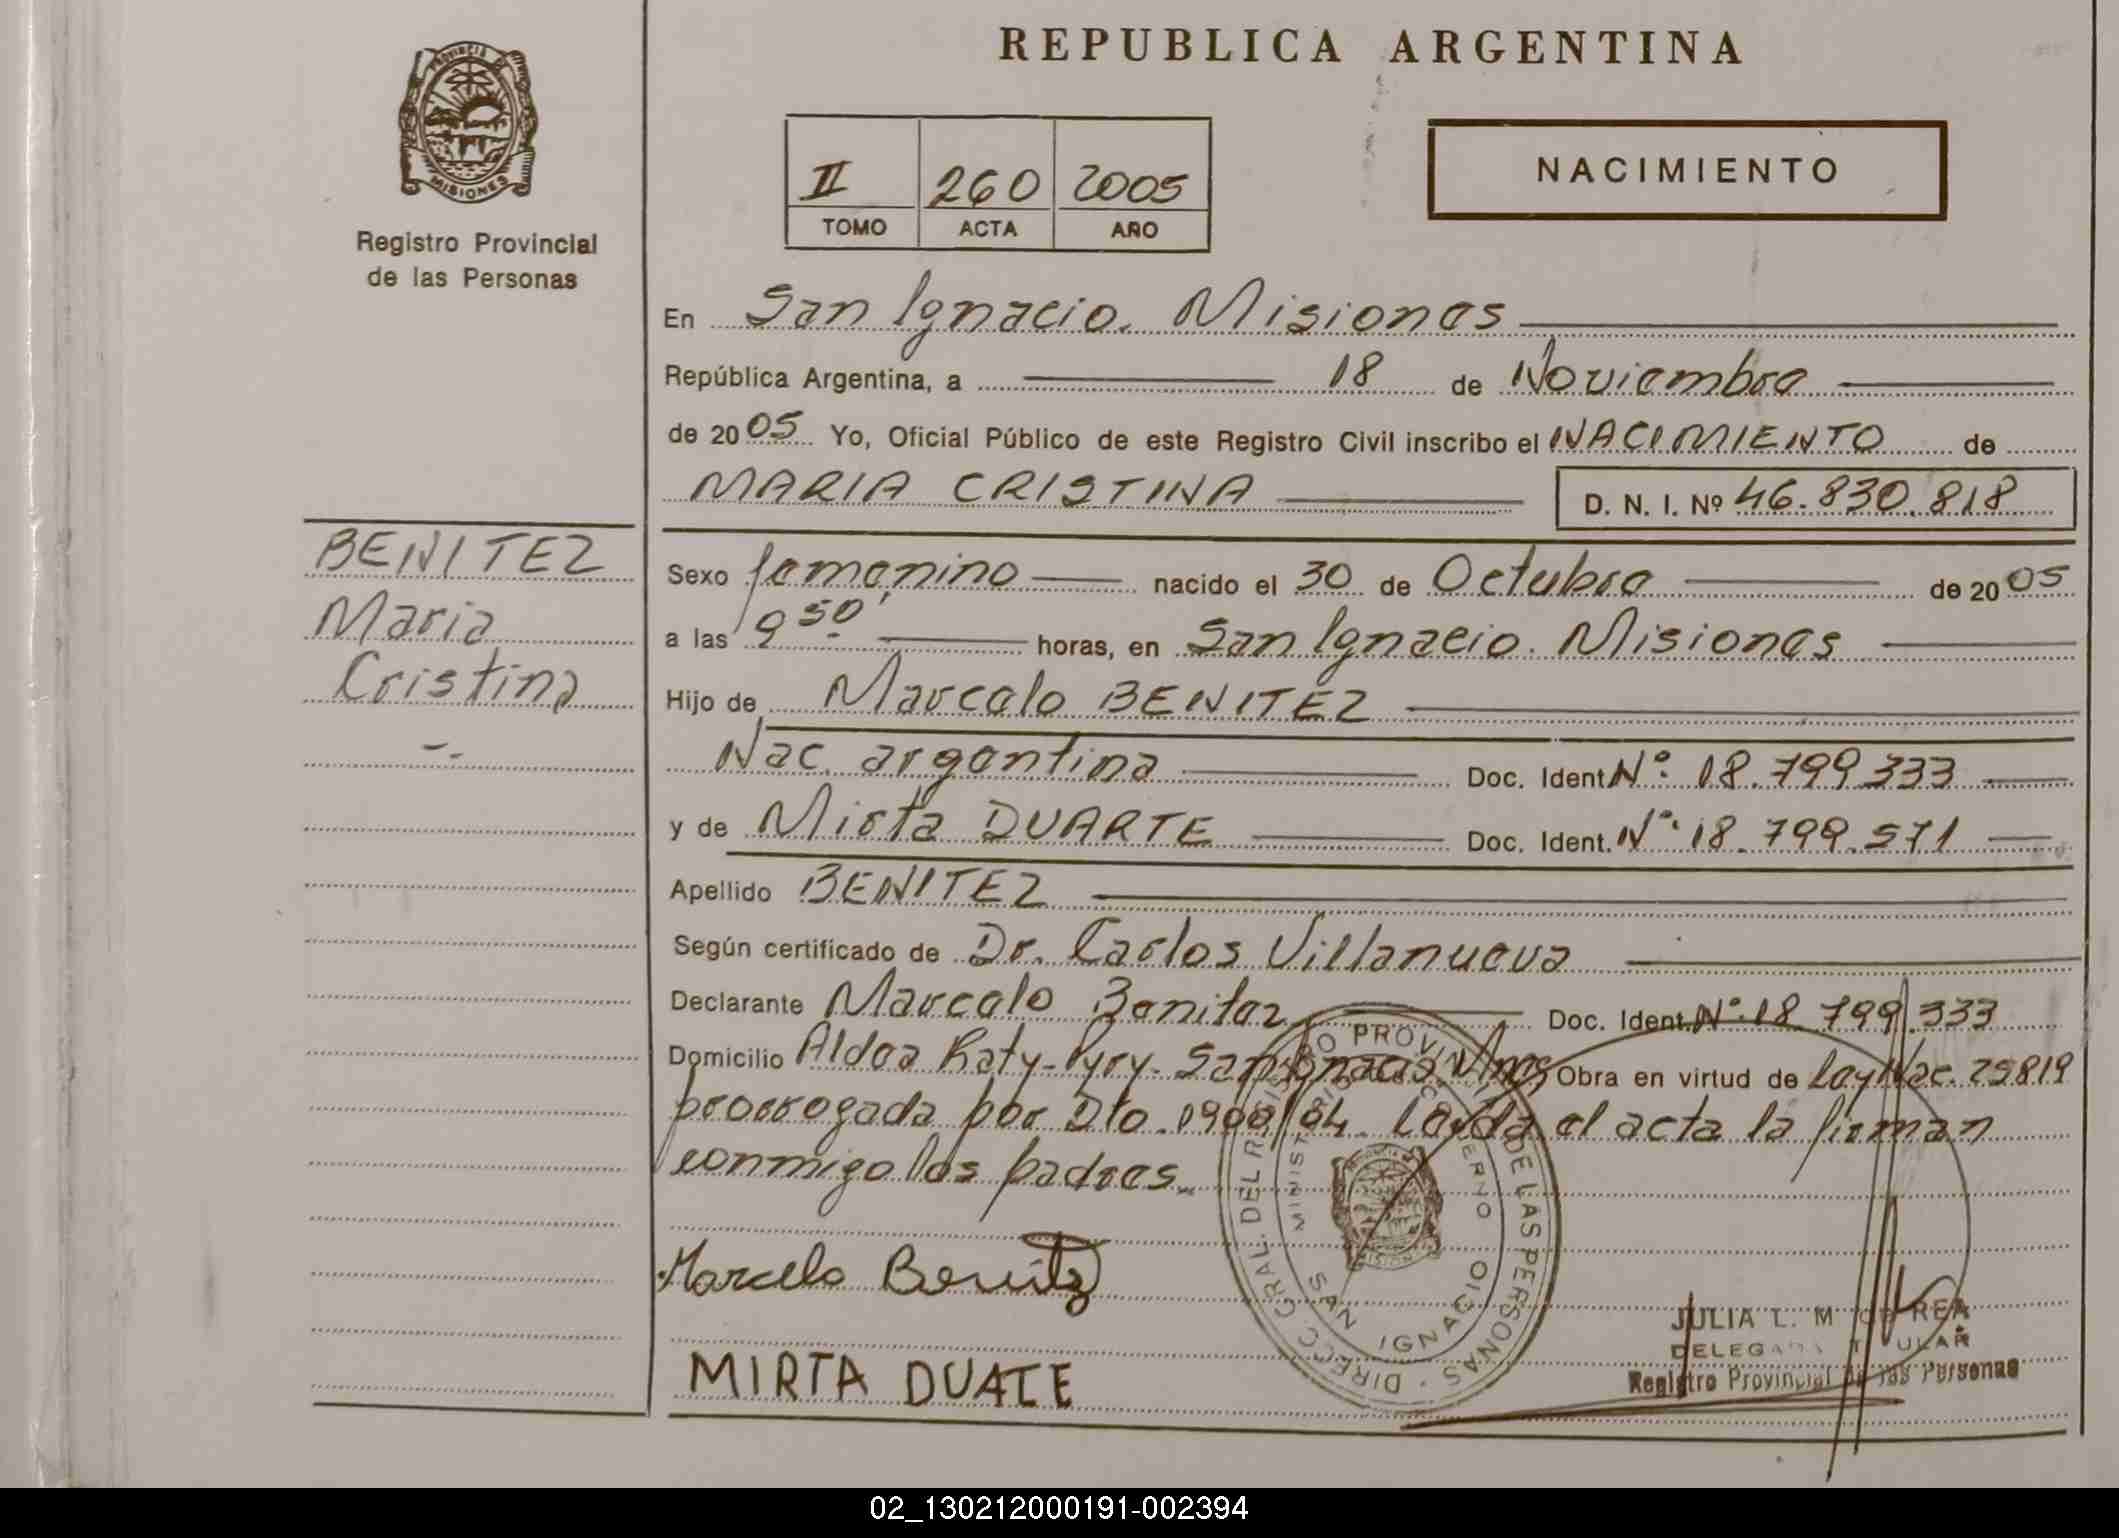 PROVINCIA DE
MISIONES
Registro Provincial
de las Personas
BENITEZ
Maria
Cristina
REPUBLICA ARGENTINA
II 260 2005
TOMO ACTA AÑO
NACIMIENTO
En San Ignacio. Misiones
República Argentina, a 18 de Noviembre
de 2005 Yo, Oficial Público de este Registro Civil inscribo el NACIMIENTO de
MARIA CRISTINA D. N. I. Nº 46.830.818
Sexo femenino nacido el 30 de Octubre de 2005
a las 9 50' horas, en San Ignacio. Misiones
Hijo de Marcelo BENITEZ
Nac. argentina Doc. Ident. Nº: 18.799.333
y de Mirta DUARTE Doc. Ident. Nº. 18.799.571
Apellido BENITEZ
Según certificado de Dr. Carlos Villanueva
Declarante Marcelo Benitez Doc. Ident. Nº. 18.799.333
Domicilio Aldea Katy-Pyry. San Ignacio Mnes Obra en virtud de Ley Nac. 25819
prorrogada por Dto. 0908/04. Leída el acta la firman
conmigo los padres.
Marcelo Benitez
MIRTA DUATE
DIRECC. GRAL. DEL REGISTRO PROVINCIAL DE LAS PERSONAS
MINISTERIO DE GOBIERNO
SAN IGNACIO
JULIA L. M
DELEGADA TITULAR
Registro Provincial de las Personas
02_130212000191-002394